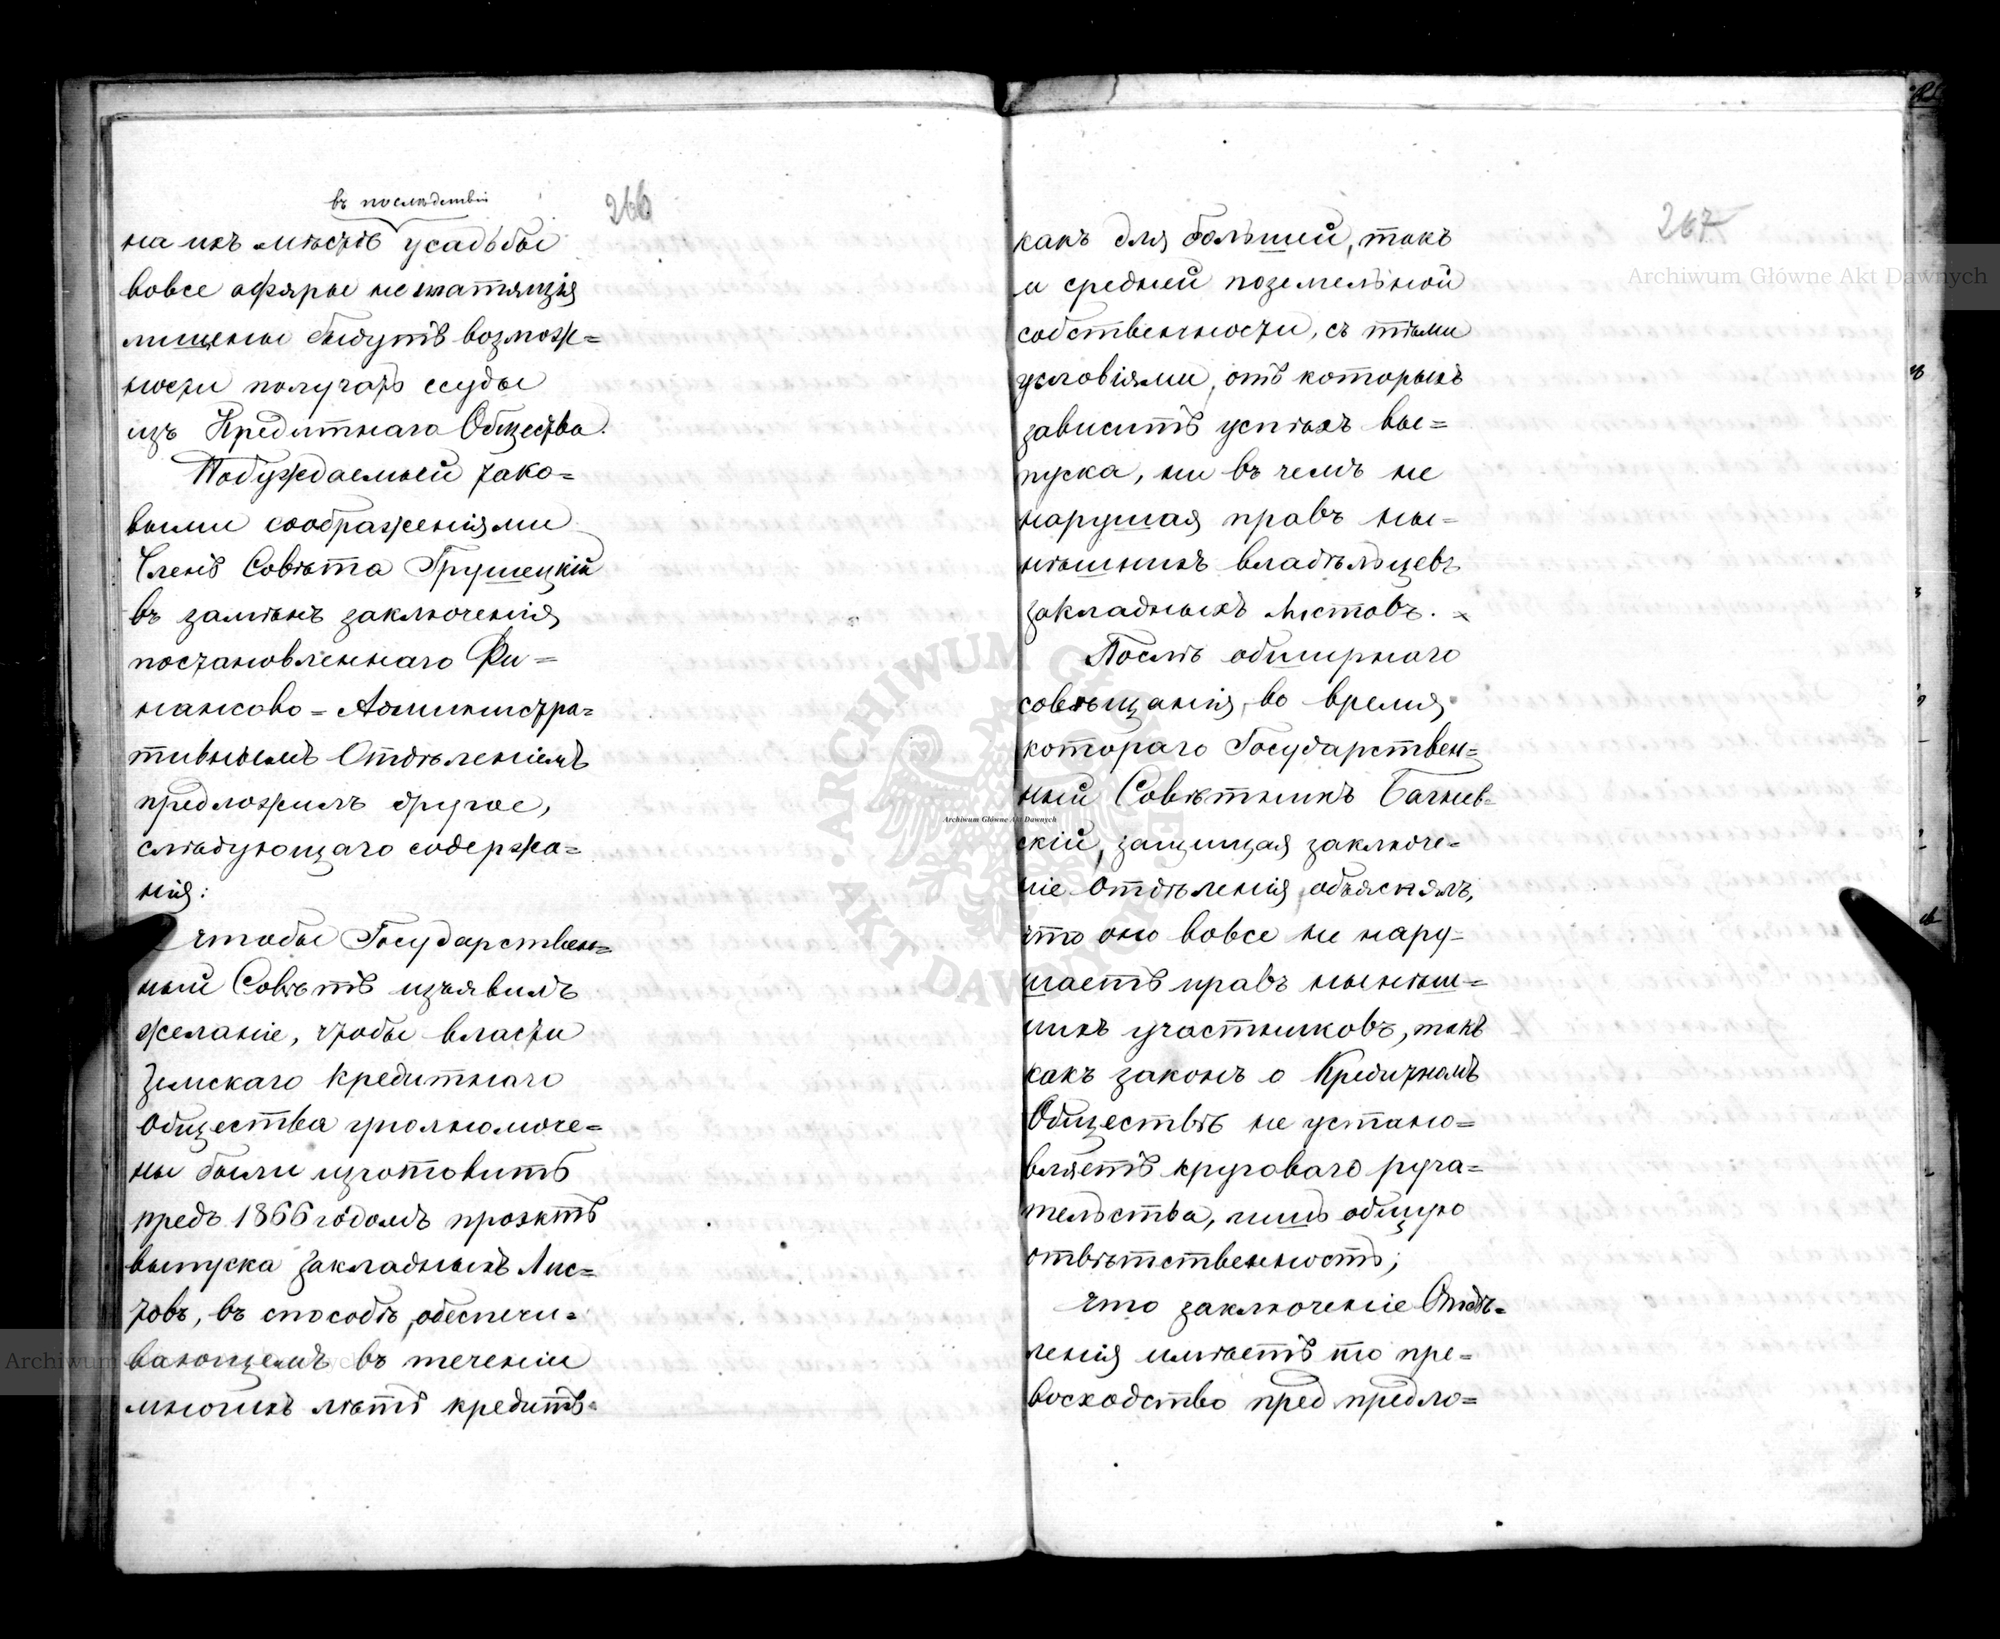 266
въ послѣдствіи
на ихъ мѣстѣ усадьбы
вовсе
лишены будутъ возмож=
ности получать ссуды
изъ Кредитнаго Общества.
Побуждаемый тако=
выми соображеніями
Членъ Совѣта Грушецкій
въ замѣнъ заключенія
постановленнаго Фи=
нансово=Администра=
тивнымъ Отдѣленіемъ
предложилъ другое,
слѣдующаго содержа=
нія:
чтобы Государствен=
ный Совѣтъ изъявилъ
желаніе, чтобы власти
Земскаго Кредитнаго
Общества уполномоче=
ны были изготовить
предъ 1866 годомъ проэктъ
выпуска Закладныхъ Лис=
товъ, въ способѣ, обеспечи=
вающемъ въ теченіи
многихъ лѣтъ кредитъ=
267
какъ для большей, такъ
и средней поземельной
собственности, съ тѣми
условіями, отъ которыхъ
зависитъ успѣхъ вы=
пуска, ни въ чемъ не
нарушая правъ ны=
нѣшнихъ владѣльцевъ
закладныхъ листовъ.
Послѣ обширнаго
совѣщанія, во время
котораго Государствен=
ный Совѣтникъ Багнев=
скій, защищая заключе=
ніе Отдѣленія, объяснялъ,
что оно вовсе не нару=
шаетъ правъ нынѣш=
нихъ участниковъ, такъ
какъ законъ о Кредитномъ
Обществѣ не устано=
вляетъ круговаго руча=
тельства, лишь общую
отвѣтственность;
что заключеніе Отдѣ=
ленія имѣетъ то пре=
восходство пред предло=
Archiwum Główne Akt Dawnych
Archiwum Główne Akt Dawnych
ARCHIWUM GŁÓWNE AKT DAWNYCH